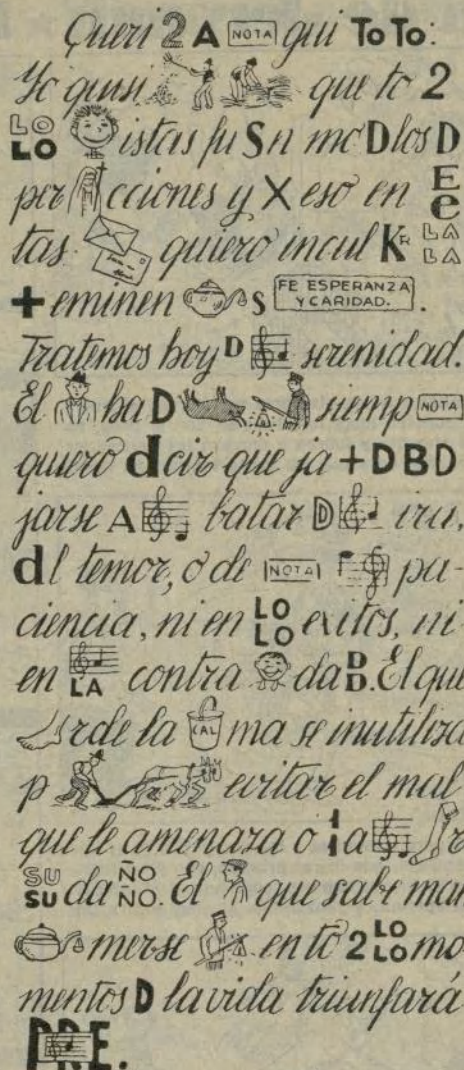 Queri 2 A NOTA qui To To:
Yo quisi que to 2
LO LO istas fu S n mo D los D
per cciones y X eso en E e
tas quiero incul K R LA LA
+ eminen s FE ESPERANZA Y CARIDAD.
Tratemos hoy D serenidad.
El ha D siemp NOTA
quiero d cir que ja + D B D
jarse A batar D ira,
d l temor, o de NOTA pa-
ciencia, ni en LO LO exitos, ni
en LA contra da D D. El que
rde la CAL ma se inutiliza
p evitar el mal
que le amenaza o 1 a r
SU SU da ÑO ÑO. El que sabe man
merse en to 2 LO LO mo
mentos D la vida triunfará
PRE.